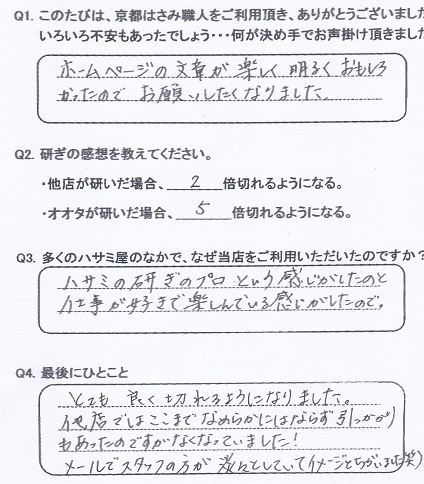 Q1. このたびは、京都はさみ職人をご利用頂き、ありがとうございました
いろいろ不安もあったでしょう・・・何が決め手でお声掛け頂きました
ホームページの文章が楽しく明るくおもしろ
かったのでお願いしたくなりました。
Q2. 研ぎの感想を教えてください。
・他店が研いだ場合、2倍切れるようになる。
・オオタが研いだ場合、5倍切れるようになる。
Q3. 多くのハサミ屋のなかで、なぜ当店をご利用いただいたのですか?
ハサミの研ぎのプロという感じがしたのと
仕事が好きで楽しんでいる感じがしたので。
Q4. 最後にひとこと
とても良く切れるようになりました。
他店ではここまでなめらかにはならず引っかかり
もあったのですがなくなっていました!
メールでスタッフの方が淡々としていてイメージとちがいました(笑)